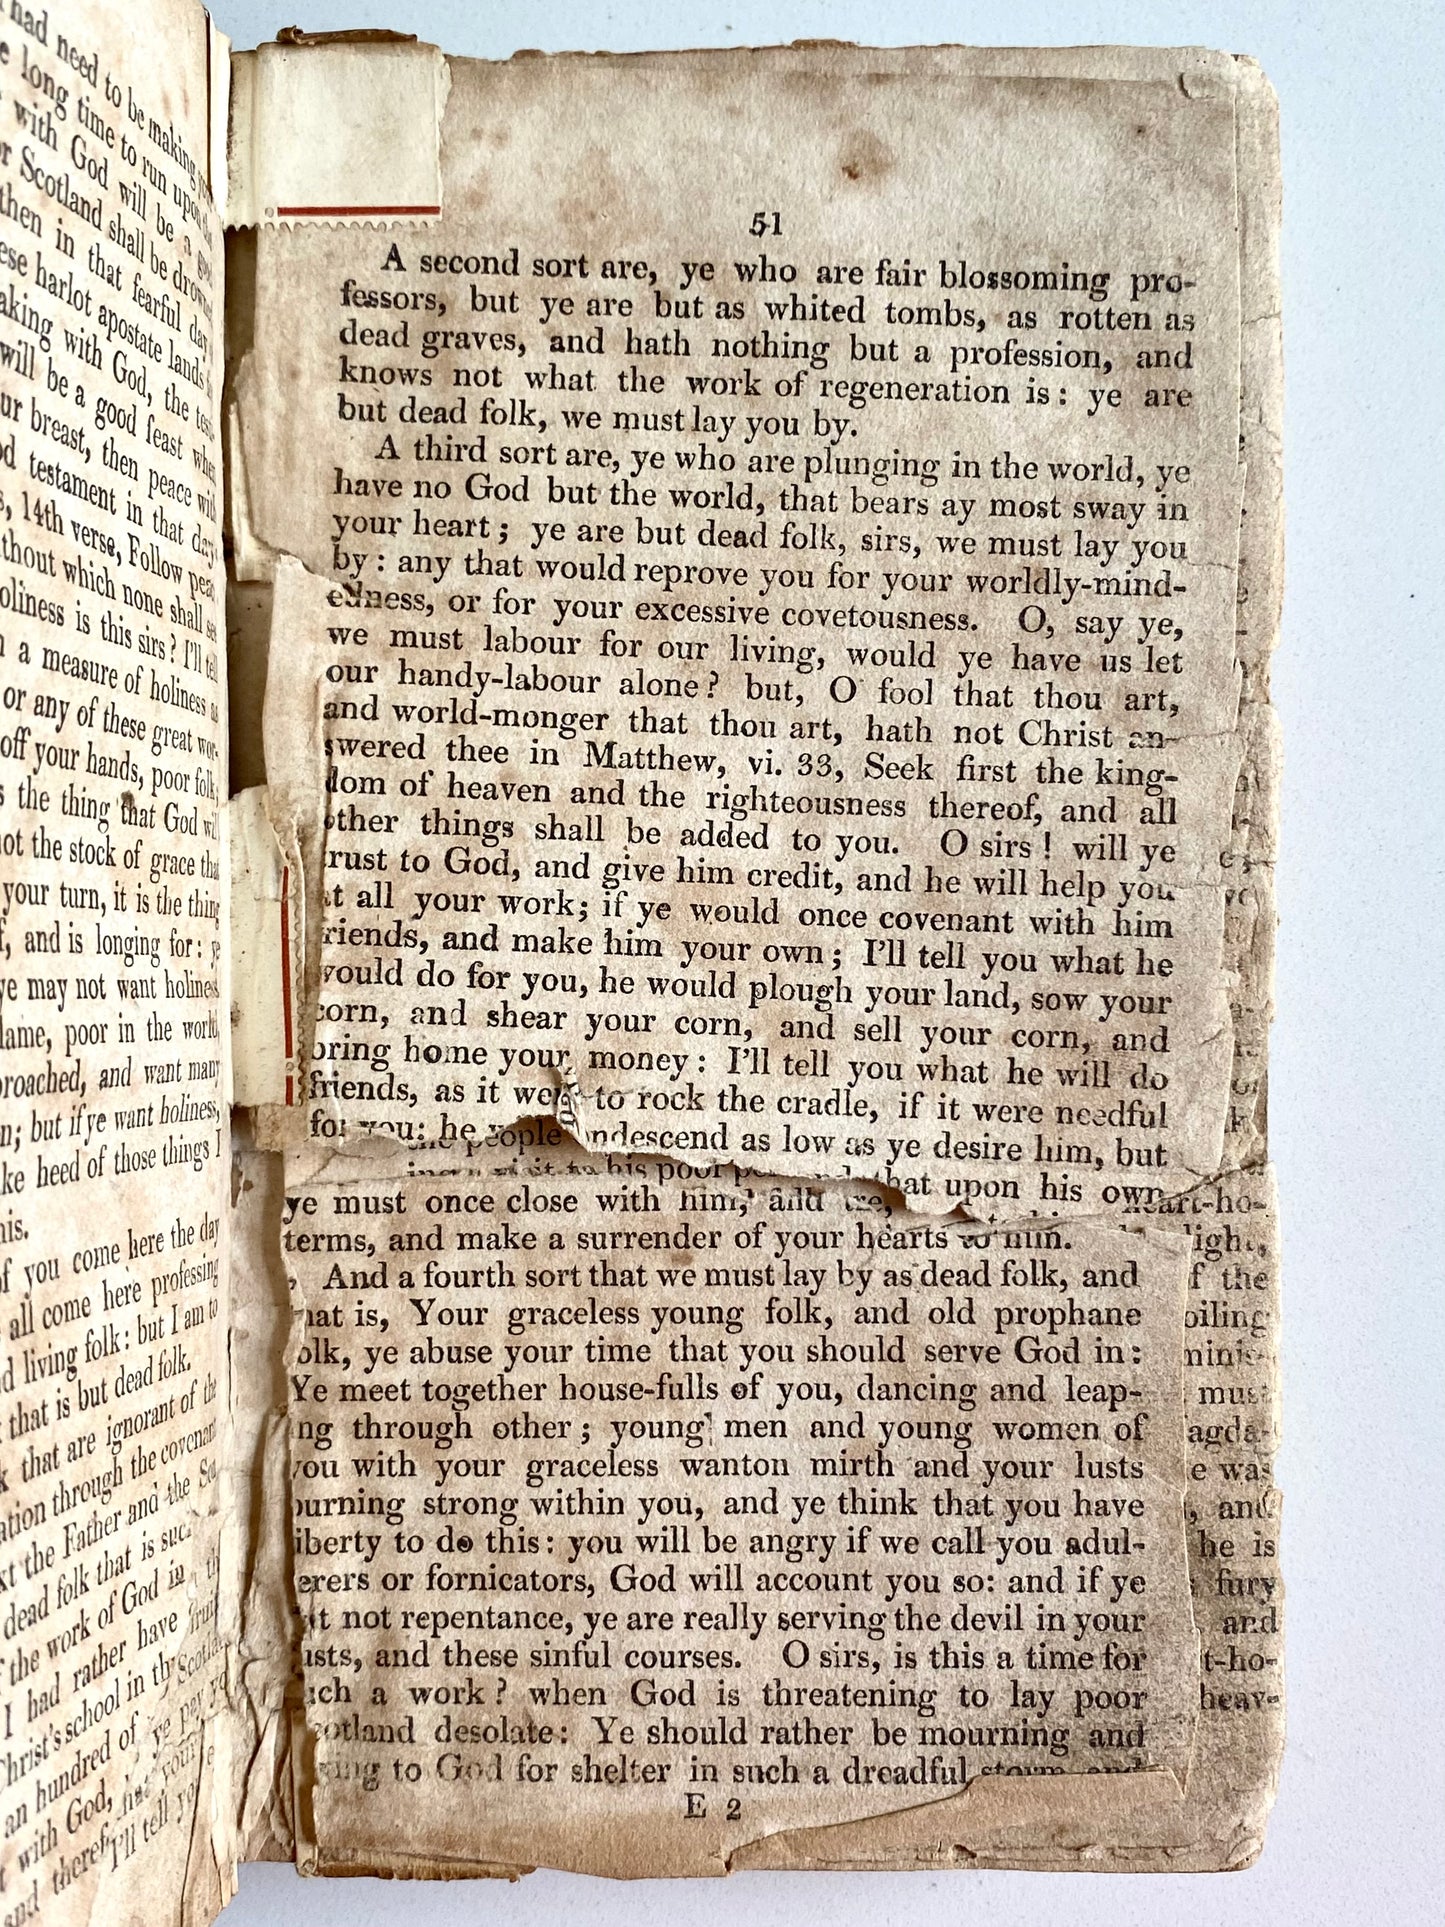 had need to be making
long time to run upon the
with God will be a good
Scotland shall be
then in that fearful day
harlot apostate lands
with God, the
will be a good feast when
breast, then peace with
testament in that day
14th verse, Follow
which none shall see
is this sirs? I'll tell
a measure of holiness as
or any of these great wor-
off your hands, poor folk,
the thing that God will
not the stock of grace that
your turn, it is the thing
and is longing for: ye
ye may not want holiness
poor in the world,
and want many
but if ye want holiness,
heed of those things I
of you come here the day
all come here professing
living folk: but I am to
that is but dead folk.
that are ignorant of the
through the covenant
the Father and the
dead folk that is
the work of God in
I had rather have
Christ's school in thy
an hundred of ye pay
with God,
and
I'll tell
51
A second sort are, ye who are fair blossoming pro-
fessors, but ye are but as whited tombs, as rotten as
dead graves, and hath nothing but a profession, and
knows not what the work of regeneration is: ye are
but dead folk, we must lay you by.
A third sort are, ye who are plunging in the world, ye
have no God but the world, that bears ay most sway in
your heart; ye are but dead folk, sirs, we must lay you
by: any that would reprove you for your worldly-mind-
edness, or for your excessive covetousness. O, say ye,
we must labour for our living, would ye have us let
our handy-labour alone? but, O fool that thou art,
and world-monger that thou art, hath not Christ an-
swered thee in Matthew, vi. 33, Seek first the king-
dom of heaven and the righteousness thereof, and all
other things shall be added to you. O sirs! will ye
trust to God, and give him credit, and he will help you
at all your work; if ye would once covenant with him
friends, and make him your own; I'll tell you what he
would do for you, he would plough your land, sow your
corn, and shear your corn, and sell your corn, and
bring home your money: I'll tell you what he will do
friends, as it were to rock the cradle, if it were needful
for you: he people ondescend as low as ye desire him, but
to his poor that upon his own
ye must once close with him, and heart-ho-
terms, and make a surrender of your hearts to him. light,
And a fourth sort that we must lay by as dead folk, and f the
that is, Your graceless young folk, and old prophane oiling
folk, ye abuse your time that you should serve God in: minis-
Ye meet together house-fulls of you, dancing and leap- must
ing through other; young men and young women of agda-
you with your graceless wanton mirth and your lusts e was
burning strong within you, and ye think that you have and
liberty to do this: you will be angry if we call you adul- he is
erers or fornicators, God will account you so: and if ye fury
not repentance, ye are really serving the devil in your and
lusts, and these sinful courses. O sirs, is this a time for t-ho-
such a work? when God is threatening to lay poor heav-
Scotland desolate: Ye should rather be mourning and
to God for shelter in such a dreadful storm and
E 2